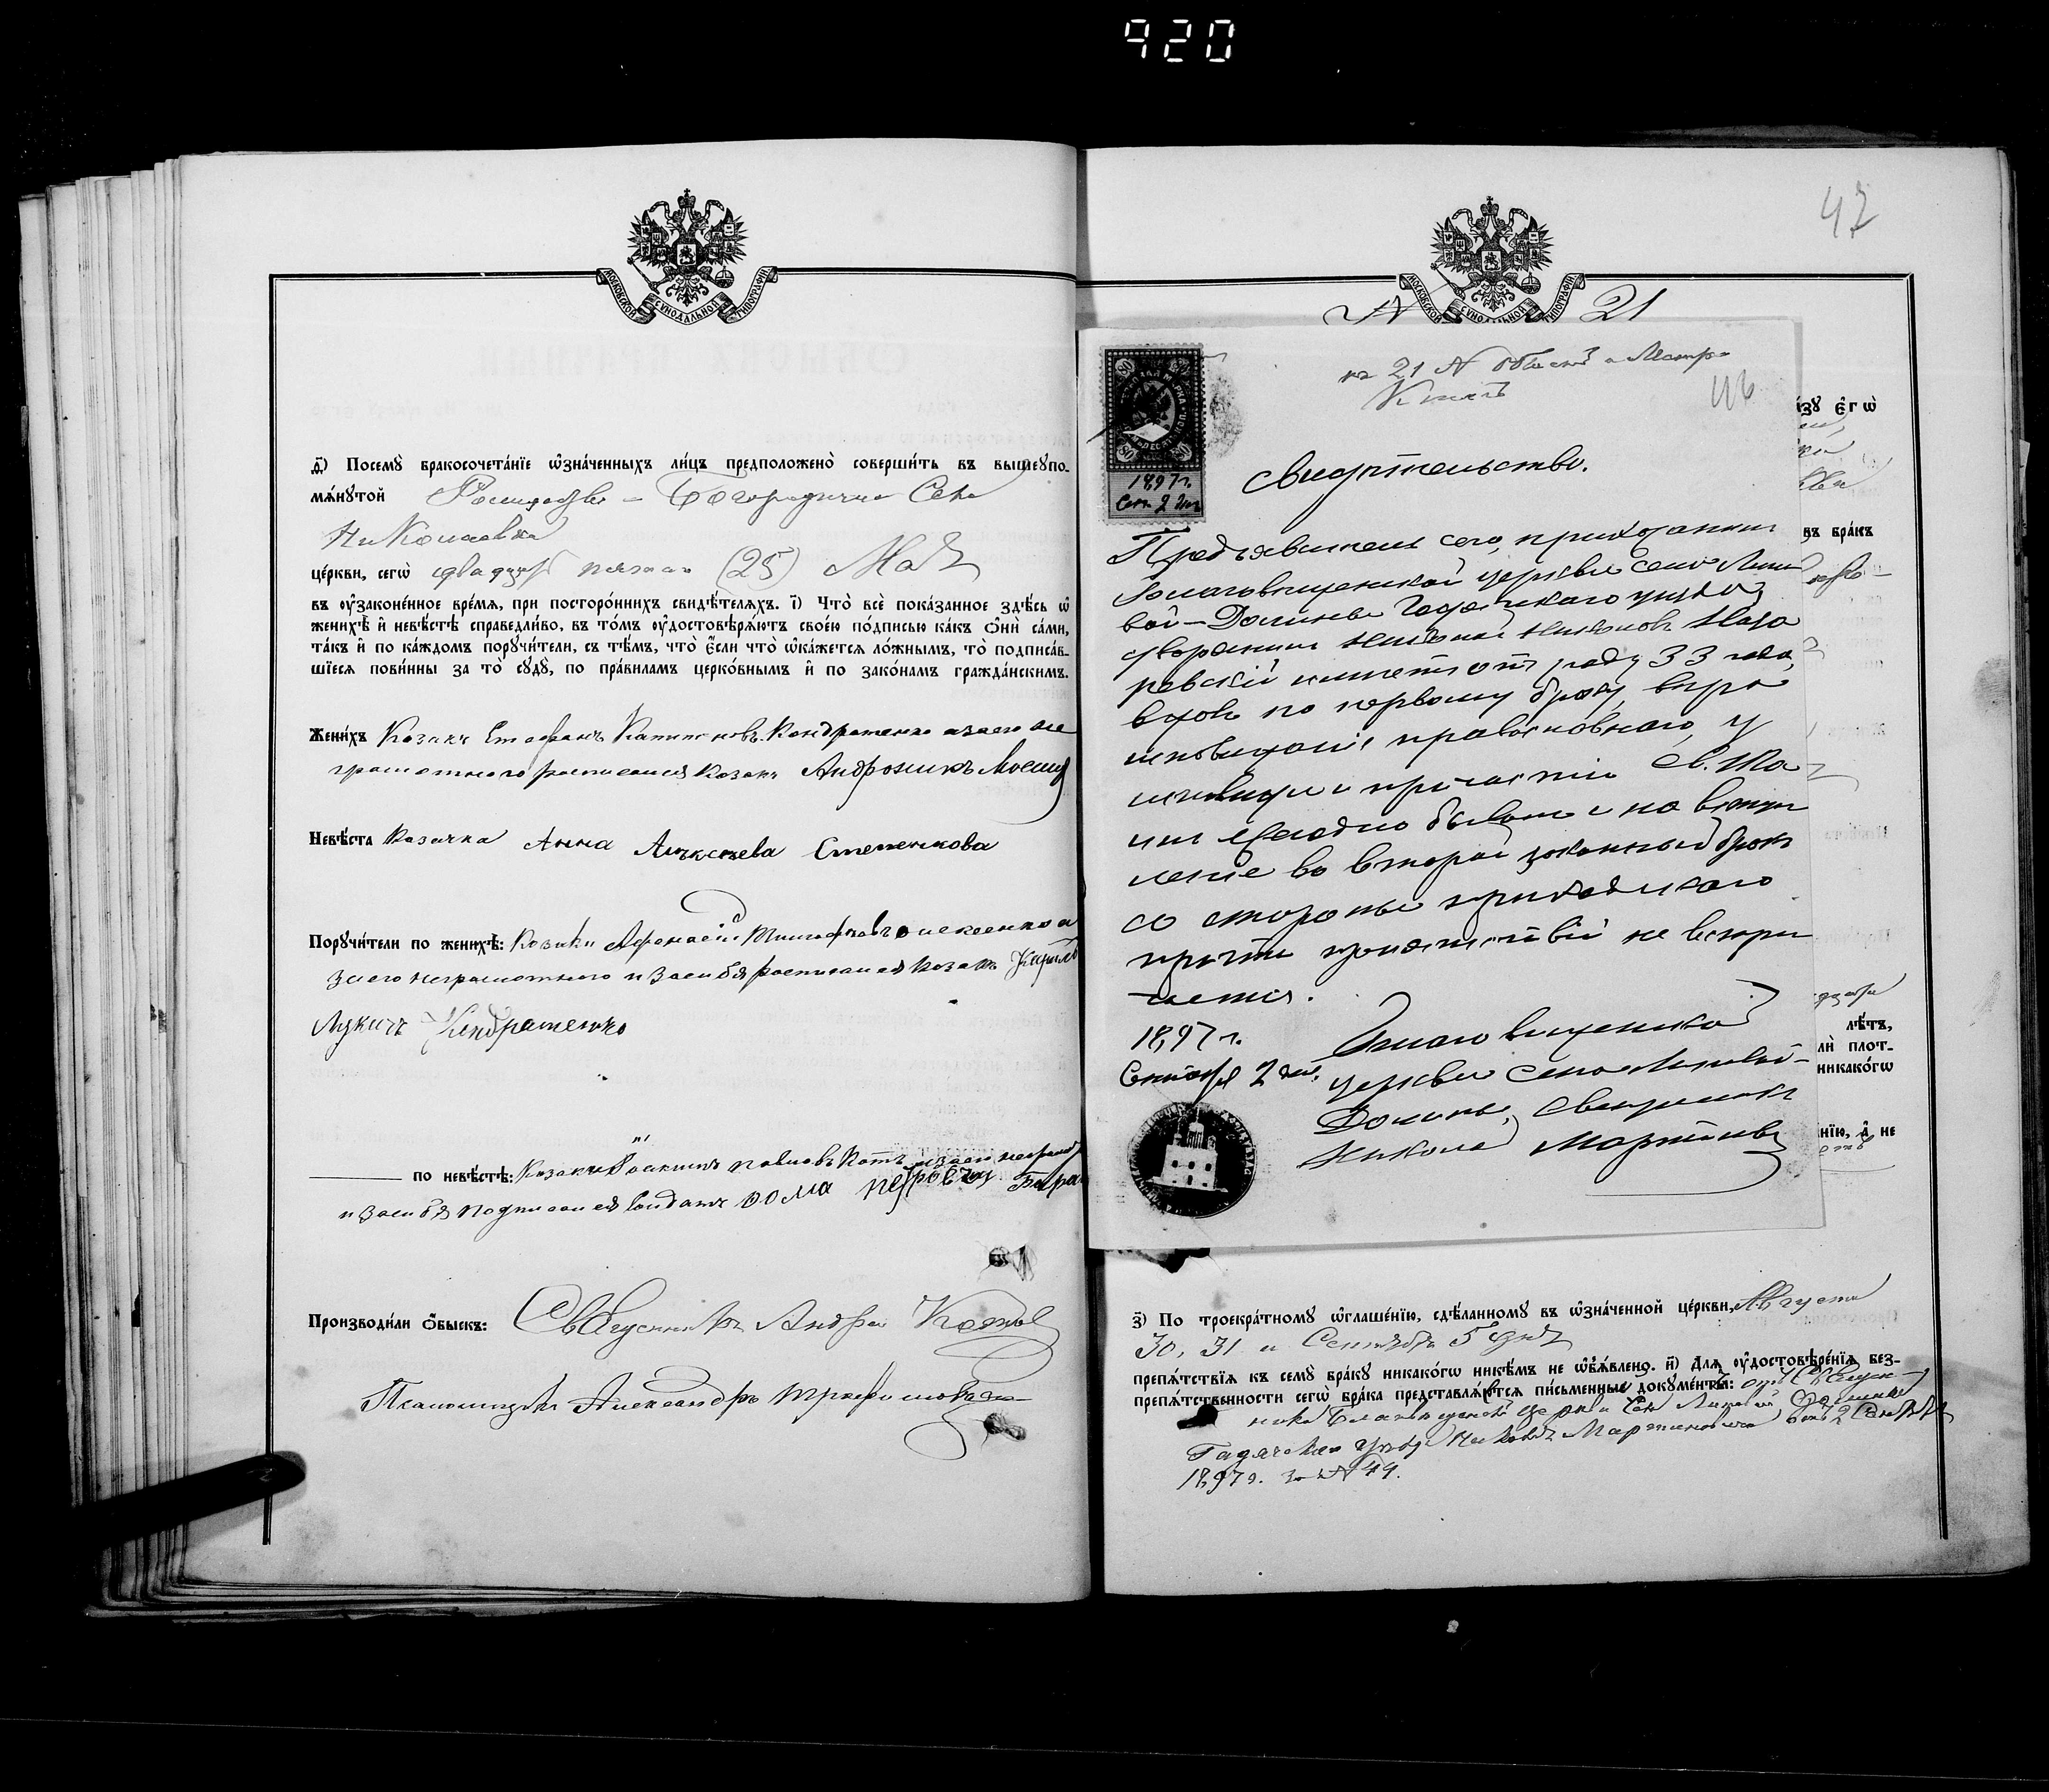 920
МОСКОВСКОЙ СѴНОДАЛЬНОЙ ТИПОГРАФІИ
ѳ҃) Посемꙋ̀ бракосочета́нїе ѡ҆зна́ченныхъ ли́цъ предположено̀ соверши́ть въ вышеꙋпо-
мѧ́нꙋтой Рождество - Богородичной Села
Николаевки
це́ркви, сегѡ̀ двадцать пятаго (25) Мая
въ ᲂу҆законе́нное вре́мѧ, при посторо́ннихъ свидѣ́телѧхъ. і҃) Что̀ всѐ пока́занное здѣ́сь ѡ҆
женихѣ̀ и҆ невѣ́стѣ справедли́во, въ то́мъ ᲂу҆достовѣрѧ́ютъ свое́ю по́дписью ка́къ ѻ҆нѝ са́ми,
та́къ и҆ по ка́ждомъ порꙋчи́тели, съ тѣ́мъ, что̀ є҆́сли что̀ ѡ҆ка́жетсѧ ло́жнымъ, то̀ подписа́в-
шїесѧ пови́нны за то̀ сꙋдꙋ̀, по пра́виламъ церко́внымъ и҆ по зако́намъ гражда́нскимъ.
Жени́хъ Козакъ Стефанъ Капитоновъ Кондратенко а за его не
грамотного росписался козакъ Андроникъ
Невѣ́ста Козачка Анна Алексѣева Степенкова
Порꙋчи́тели по женихѣ̀: Козаки Афанасій а
за его неграмотного и за себя росписался козакъ Кирилъ
Лукичъ Кондратенко
по невѣ́стѣ: Козакъ а за его неграмот
и за себя подписался солдатъ Фома Петровичъ
Производи́ли ѻ҆́быскъ: Священникъ Андрей
Псаломщикъ Александръ
47
МОСКОВСКОЙ СѴНОДАЛЬНОЙ ТИПОГРАФІИ
№ 21
къ 21 № обыскн. и Метр.
Книгъ
46
1897 г.
Сен. 2 дня
Свидѣтельство.
Предъявитель сего, прихожанинъ
Благовѣщенской церкви села Липо
вой-Долины Гадячскаго уѣзда
дворянинъ
ревскій имѣетъ отъ роду 33 года,
вдовъ по первому браку, вѣро
исповѣданія православнаго, у
исповѣди и причастія Св. Та
инъ ежегодно бывалъ и на вступ
леніе во второй законный бракъ
со стороны приходскаго
причта препятствій не встрѣ
чается.
1897 г.
Сентября 2 дня.
Благовѣщенской
церкви села Липовой-
Долины, священникъ
Николай Мартиновичъ
з҃) По троекра́тномꙋ ѡ҆глаше́нїю, сдѣ́ланномꙋ въ ѡ҆зна́ченной це́ркви, Августа
30, 31 и Сентября 5 дня
препѧ́тствїѧ къ семꙋ̀ бра́кꙋ никако́гѡ никѣ́мъ не ѡ҆б̾ѧ́влено. и҃) Длѧ ᲂу҆достовѣре́нїѧ без-
препѧ́тственности сегѡ̀ бра́ка представлѧ́ютсѧ пи́сьменные докꙋме́нты: отъ Священ-
ника Благовѣщенской церкви Села Липовой Долины
Гадячскаго уѣзда Николая Мартиновича отъ 2 Сентября
1897 г. за № 49.